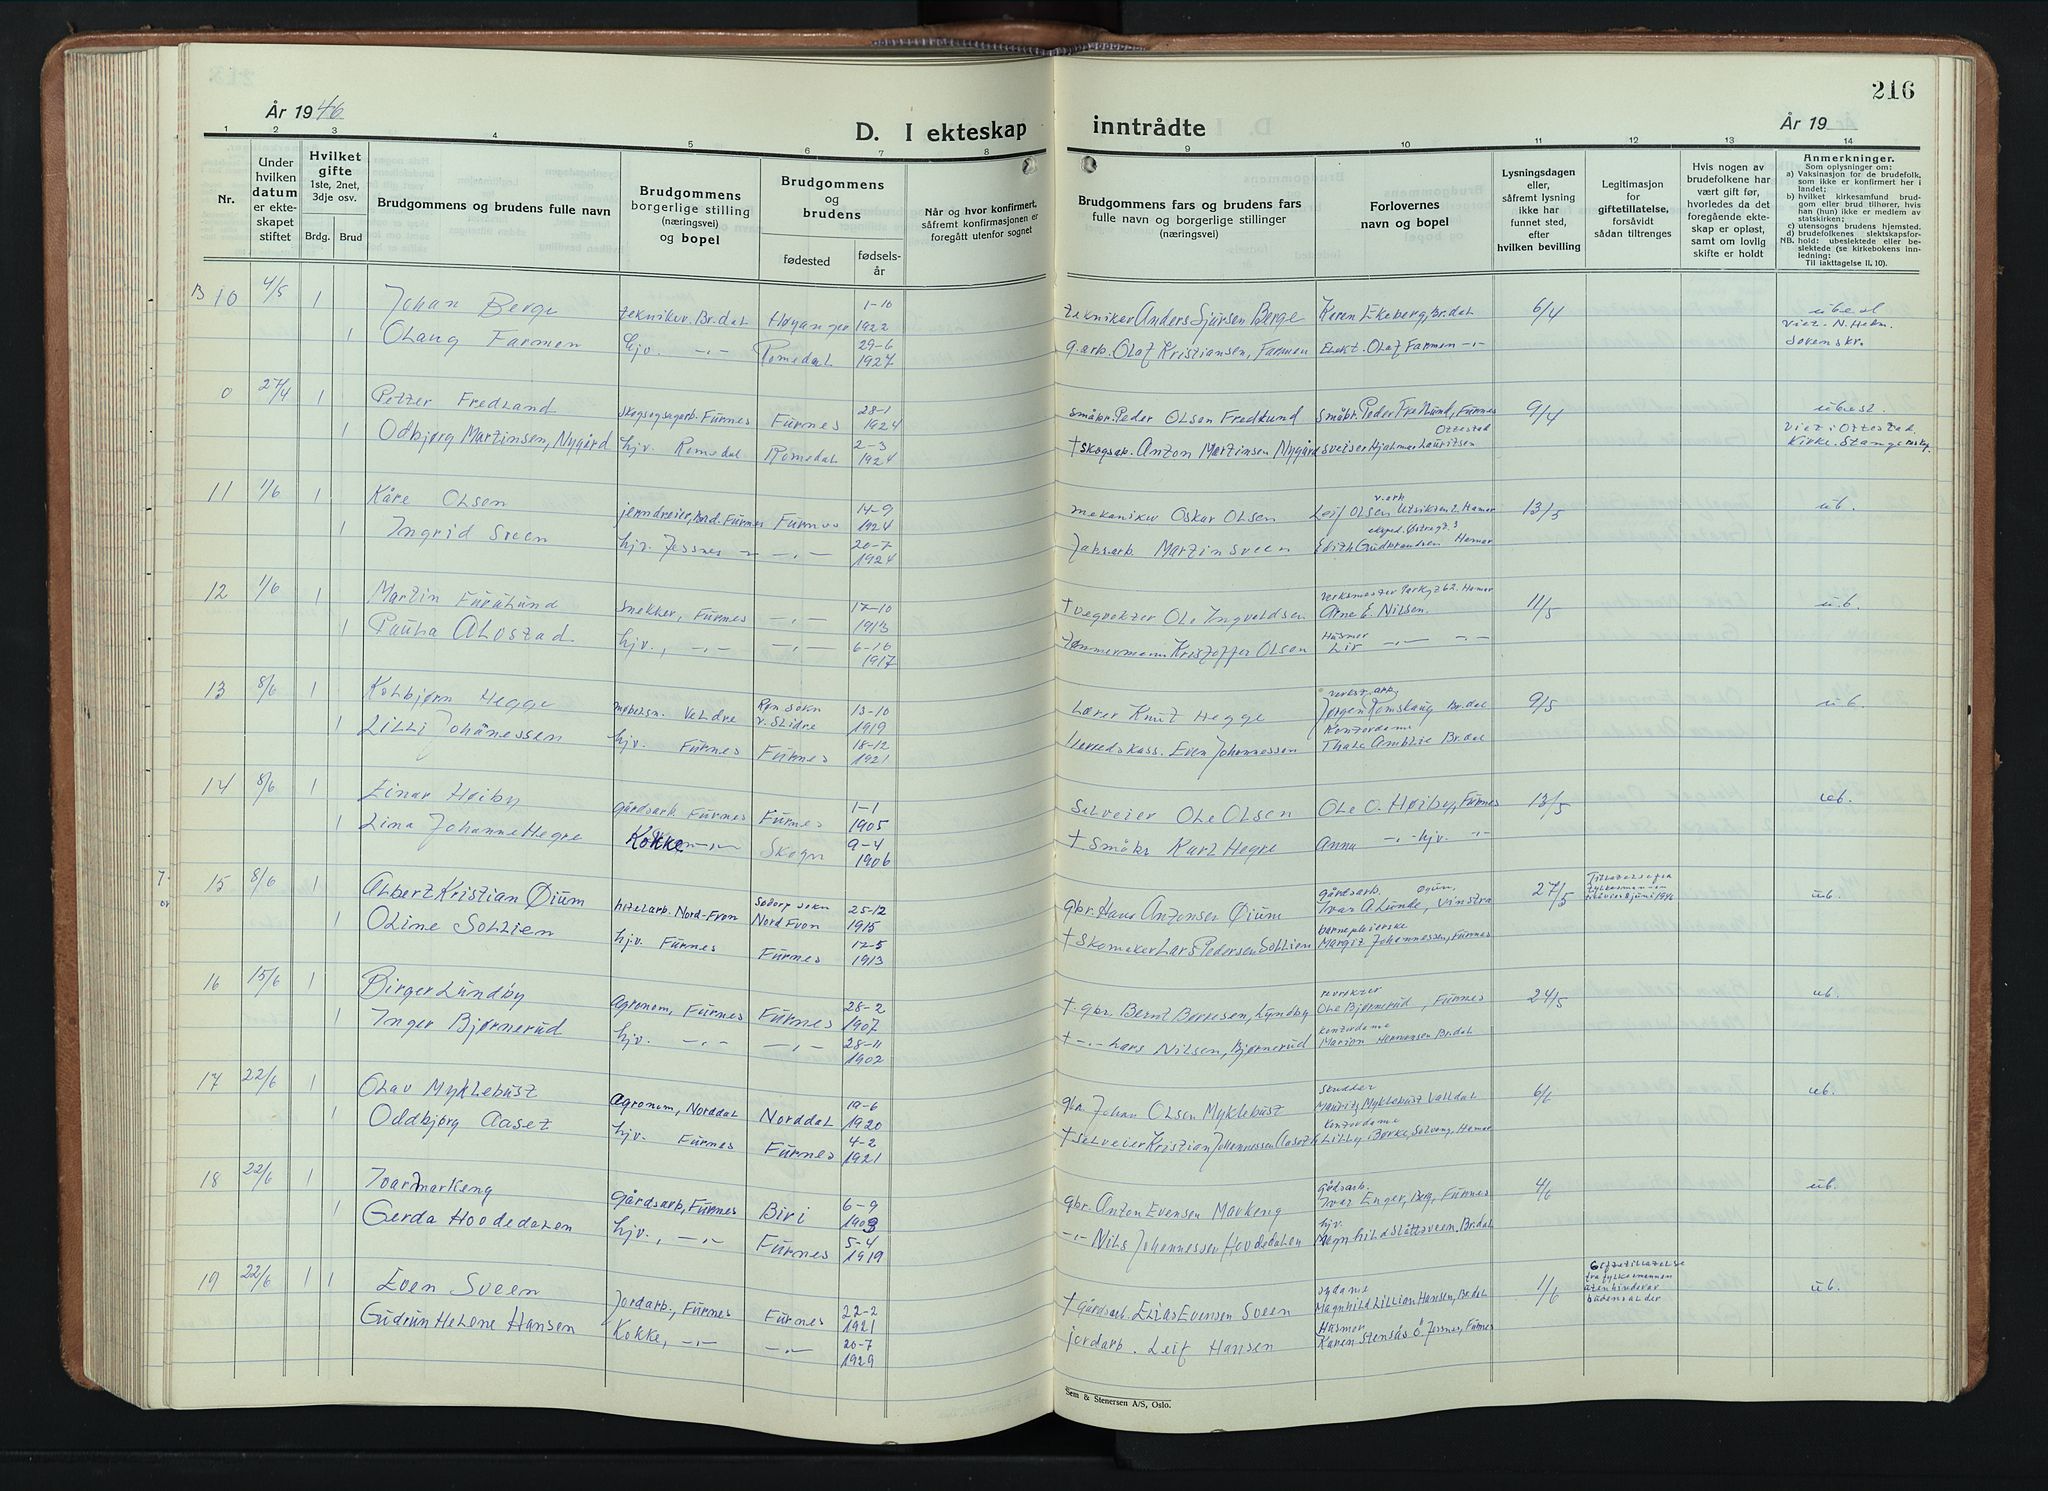 216
År 1946
År 19
D. I ekteskap inntrådte
1 2 3 4 5 6 7 8 9 10 11 12 13 14
Nr.
Under hvilken datum er ekteskapet stiftet
Hvilket gifte 1ste, 2net, 3dje osv.
Brdg. Brud
Brudgommens og brudens fulle navn
Brudgommens borgerlige stilling (næringsvei) og bopel
Brudgommens og brudens
fødested
fødselsår
Når og hvor konfirmert, såfremt konfirmasjonen er foregått utenfor sognet
Brudgommens fars og brudens fars fulle navn og borgerlige stillinger (næringsvei)
Forlovernes navn og bopel
Lysningsdagen eller, såfremt lysning ikke har funnet sted, efter hvilken bevilling
Legitimasjon for giftetillatelse, forsåvidt sådan tiltrenges
Hvis nogen av brudefolkene har vært gift før, hvorledes da det foregående ekteskap er opløst, samt om lovlig skifte er holdt
Anmerkninger.
Som oplysninger om:
a) Vaksinasjon for de brudefolk, som ikke er konfirmert her i landet;
b) hvilket kirkesamfund brudgom eller brud tilhører, hvis han (hun) ikke er medlem av statskirken;
c) utensogns brudens hjemsted.
d) brudefolkenes slektskapsforhold: ubeslektede eller beslektede (se kirkebokens innledning:
NB. Til iakttagelse II, 10).
B 10 4/5 1 Johan Berge tekniker. Br.dal Høyanger 1-10 1922 tekniker Anders Sjursen Berge Karen Ekeberg, Br.dal 6/4 ubesl
viet N. Helm.
1 Olaug Farmen hjv. -,- Romedal 29-6 1927 g.arb. Olaf Kristiansen, Farmen Elekt. Olaf Farmen -,-
0 27/4 1 Petter Fredlund skogsogsagarb. Furnes Furnes 28-1 1924 småbr. Peder Olsen Fredlund Småbr. Peder Fredlund, Furnes 9/4 ubesl.
viet i Ottestad
Kirke. Stange
1 Odbjørg Martinsen, Nygård hjv. Romedal Romedal 2-3 1924 † skogsarb. Anton Martinsen Nygård sveiser Hjalmar Lauritsen Ottestad
11 1/6 1 Kåre Olsen Furnes Furnes 14-9 1924 mekaniker Oskar Olsen Leif Olsen Hamar 13/5 ub.
1 Ingrid Sveen hjv. Jessnes -,- -,- 20-7 1924 Martin Sveen Edith Gudbrandsen Hamar
12 1/6 1 Martin Furulund snekker, Furnes -,- 17-10 1913 † vegvokter Ole Ingvoldsen verksmester Parkgt 62. Hamar Arne E. Nilsen. 11/5 u.b.
1 Paula Alvstad hjv., -,- -,- 6-10 1917 tømmermann Kristoffer Olsen Husmor Liv -,- -,-
13 8/6 1 Kolbjørn Hegge møbelsn. Veldre Røn sokn v. Slidre 13-10 1919 Lærer Knut Hegge verkst.arb. Jørgen Br.dal 9/5 u.b.
1 Lilli Johanessen hjv. Furnes Furnes 18-12 1921 Herredskass. Even Johannessen Kontordame Thale Amblie Br.dal
14 8/6 1 Einar Høiby gårdsarb. Furnes Furnes 1-1 1905 selveier Ole Olsen Ole O. Høiby, Furnes 13/5 ub.
1 Lina Johanne Hegre Kokke -,- Skogn 9-4 1906 † småbr Karl Hegre Anna -,- hjv. -,-
15 8/6 1 Albert Kristian Øium hotelarb. Nord-Fron Sødorp sokn Nord Fron 25-12 1915 gbr. Hans Antonsen Øium gårdsarb. Ivar A Lunde, Øium, Vinstra 27/5 ub.
1 Oline Sollien hjv. Furnes Furnes 12-5 1913 † skomaker Lars Pedersen Sollien barnepleierske Margit Johannessen, Furnes
16 15/6 1 Birger Lundby Agronom, Furnes Furnes 28-2 1907 † gbr. Bernt Børresen, Lundby revrøkter Ole Bjørnerud, Furnes 24/5 ub.
1 Inger Bjørnerud hjv. -,- -,- 28-11 1902 † -,- Lars Nilsen, Bjørnerud kontordame Marion Hermansen Br.dal
17 22/6 1 Olav Myklebust Agronom, Norddal Norddal 19-6 1920 gbr. Johan Olsen Myklebust Mauritz Myklebust Valldal 6/6 ub.
1 Oddbjørg Aaset hjv. Furnes Furnes 4-2 1921 † selveier Kristian Johannessen Aaset kontordame Lilly Børke, Solvang, Hamar
18 22/6 1 Ivar Markeng gårdsarb., Furnes Biri 6-9 1903 gbr. Anton Evensen Markeng gårdsarb. Ivar Enger, Berg, Furnes 4/6 ub.
1 Gerda Hovdedalen hjv., -,- Furnes 5-4 1919 -,- Nils Johannessen Hovdedalen hjv. Magnhild Slåttsveen. Br.dal
19 22/6 1 1 Even Sveen Jordarb., Furnes Furnes 22-2 1921 † gårdsarb. Elias Evensen Sveen sydame Magnhild Lillian Hansen, Br.dal 1/6 Giftetillatelse fra fylkesmannen uten hinder av brudens alder ub.
Gudrun Helene Hansen Kokke, -,- -,- 20-7 1929 jordarb. Leif Hansen Husmor Karen Stensås Ø. Jessnes, Furnes
Sem & Stenersen A/S, Oslo.